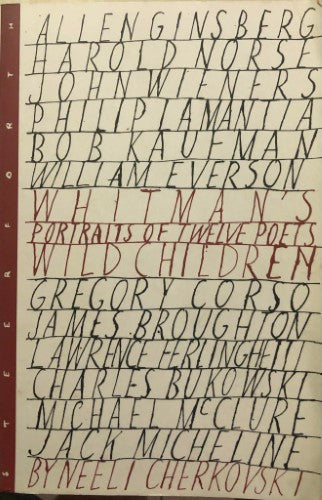 ALLEN GINSBERG
HAROLD NORSE
JOHN WIENERS
PHILIP LAMANTIA
BOB KAUFMAN
WILLIAM EVERSON
WHITMAN'S
PORTRAITS OF TWELVE POETS
WILD CHILDREN
GREGORY CORSO
JAMES BROUGHTON
LAWRENCE FERLINGHETTI
CHARLES BUKOWSKI
MICHAEL McCLURE
JACK MICHELINE
BY NEELI CHERKOVSKI
STEERFORTH